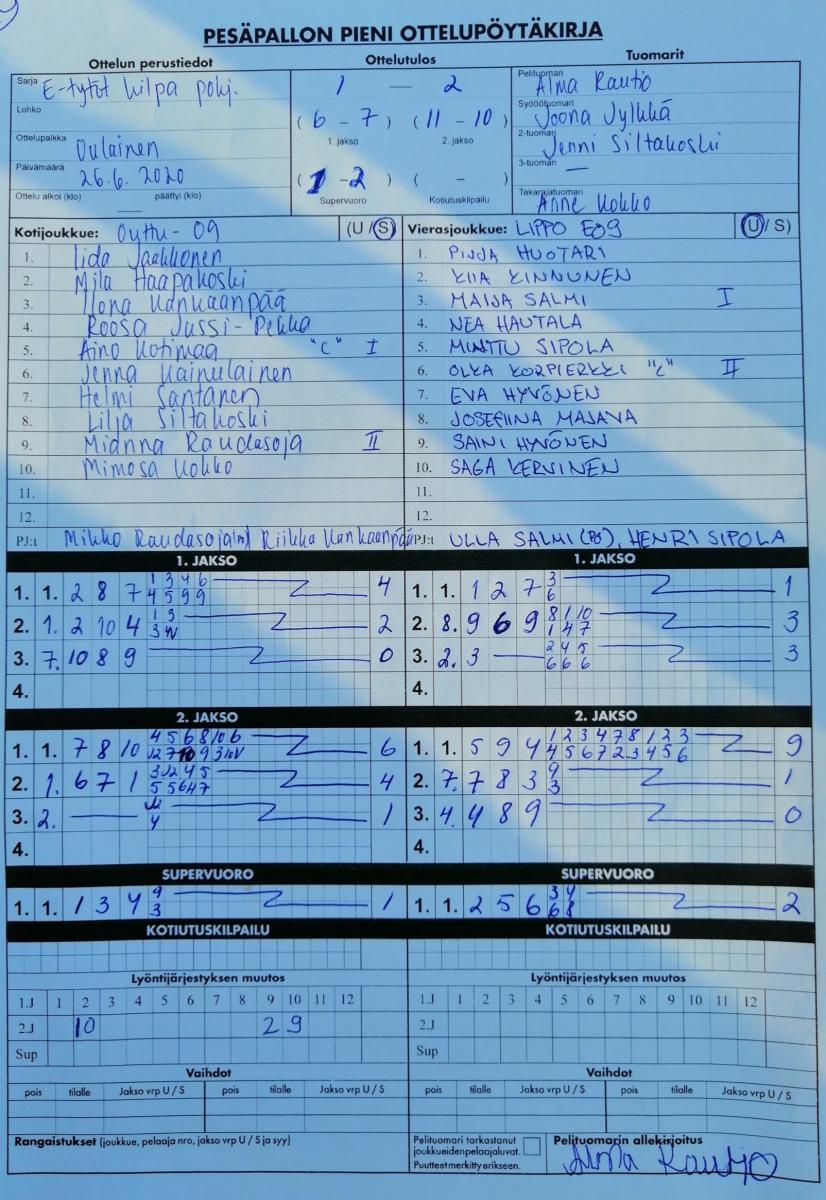 PESÄPALLON PIENI OTTELUPÖYTÄKIRJA
Ottelun perustiedot Ottelutulos Tuomarit
Sarja E-tytöt kilpa pohj.
Lohko
Ottelupaikka Oulainen
Päivämäärä 26.6.2020
Ottelu alkoi (klo) päättyi (klo)
1 – 2
(6 – 7) (11 – 10)
1. jakso 2. jakso
(1 – 2) ( – )
Supervuoro Kotiutuskilpailu
Pelituomari Alma Rautio
Syöttötuomari Joona Jylkkä
2-tuomari Jenni Siltakoski
3-tuomari —
Takarajatuomari Anne Kokko
Kotijoukkue: Outtu-09 (U/S)
1. Iida Jaakkonen
2. Mila Haapakoski
3. Ilona Kankaanpää
4. Roosa Jussi-Pekka
5. Aino Kotimaa "C" I
6. Jenna Kainulainen
7. Helmi Santanen
8. Lilja Siltakoski
9. Mianna Raudasoja II
10. Mimosa Kokko
11.
12.
PJ:t Mikko Raudasoja Riikka Kankaanpää
Vierasjoukkue: LIPPO E09 (U/S)
1. PINJA HUOTARI
2. KIIA KINNUNEN
3. MAIJA SALMI I
4. NEA HAUTALA
5. MINTTU SIPOLA
6. OLKA KORPIERKKI "C" II
7. EVA HYVÖNEN
8. JOSEFIINA MAJAVA
9. SAINI HYVÖNEN
10. SAGA KERVINEN
11.
12.
PJ:t ULLA SALMI (PJ), HENRI SIPOLA
1. JAKSO
1. 1. 2 8 7 1 3 4 6 4
4 5 9 9
2. 1. 2 10 4 1 3 2
3 W
3. 7. 10 8 9 0
4.
1. JAKSO
1. 1. 1 2 7 3 1
6
2. 8. 9 6 9 8 1 10 3
1 4 7
3. 2. 3 — 2 4 5 3
6 6 6
4.
2. JAKSO
1. 1. 7 8 10 4 5 6 8 10 6 6
2. 1. 6 7 1 4
5 5 6 4 7
3. 2. — 1
4
4.
2. JAKSO
1. 1. 5 9 4 1 2 3 4 7 8 1 2 3 9
4 5 6 7 2 3 4 5 6
2. 7. 7 8 3 9 1
3
3. 4. 4 8 9 0
4.
SUPERVUORO
1. 1. 1 3 4 9 1
3
SUPERVUORO
1. 1. 2 5 6 3 4 2
6 8
KOTIUTUSKILPAILU
Lyöntijärjestyksen muutos
1.J 1 2 3 4 5 6 7 8 9 10 11 12
2.J 10 2 9
Sup
KOTIUTUSKILPAILU
Lyöntijärjestyksen muutos
1.J 1 2 3 4 5 6 7 8 9 10 11 12
2.J
Sup
Vaihdot
pois tilalle Jakso vrp U / S pois tilalle Jakso vrp U / S
Vaihdot
pois tilalle Jakso vrp U / S pois tilalle Jakso vrp U / S
Rangaistukset (joukkue, pelaaja nro, jakso vrp U / S ja syy)
Pelituomari tarkastanut
joukkueidenpelaajaluvat.
Puutteet merkitty erikseen.
Pelituomarin allekirjoitus
Alma Rautio